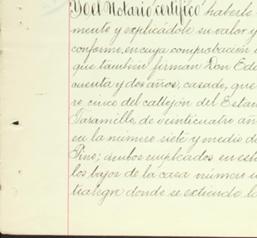 Yo el Notario certifico haberle
mente y explicádole su valor y
conforme, en cuya comprobación
que también firman Don Ede
cuenta y dos años, casado, que
ro cinco del callejón del Estan
Jaramillo, de veinticuatro añ
en la número siete y medio de
Pino; ámbos empleados en est
los bajos de la casa número
tealegre donde se extiende la